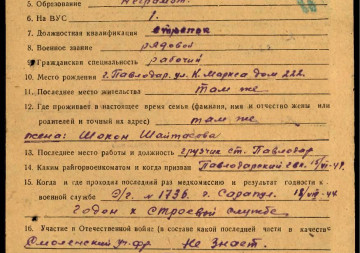 5. Образование
6. На ВУС 1.
7. Должностная квалификация стрелок
8. Военное звание рядовой
9. Гражданская специальность рабочий
10. Место рождения г. Павлодар. ул. К. Маркса дом 222.
11. Последнее место жительства там же
12. Где проживает в настоящее время семья (фамилия, имя и отчество жены или
родителей и точный их адрес) там же
жена: Шокон Шайтасова
13. Последнее место работы и должность грузчик ст. Павлодар
14. Каким райгорвоенкоматом и когда призван Павлодарский гвк.
15. Когда и где проходил последний раз медкомиссию и результат годности к
военной службе Э/г. № 1736. г. Сарапул.
годен к строевой службе
16. Участие в Отечественной войне (в составе какой последней части и качества
Смоленский Не знает.